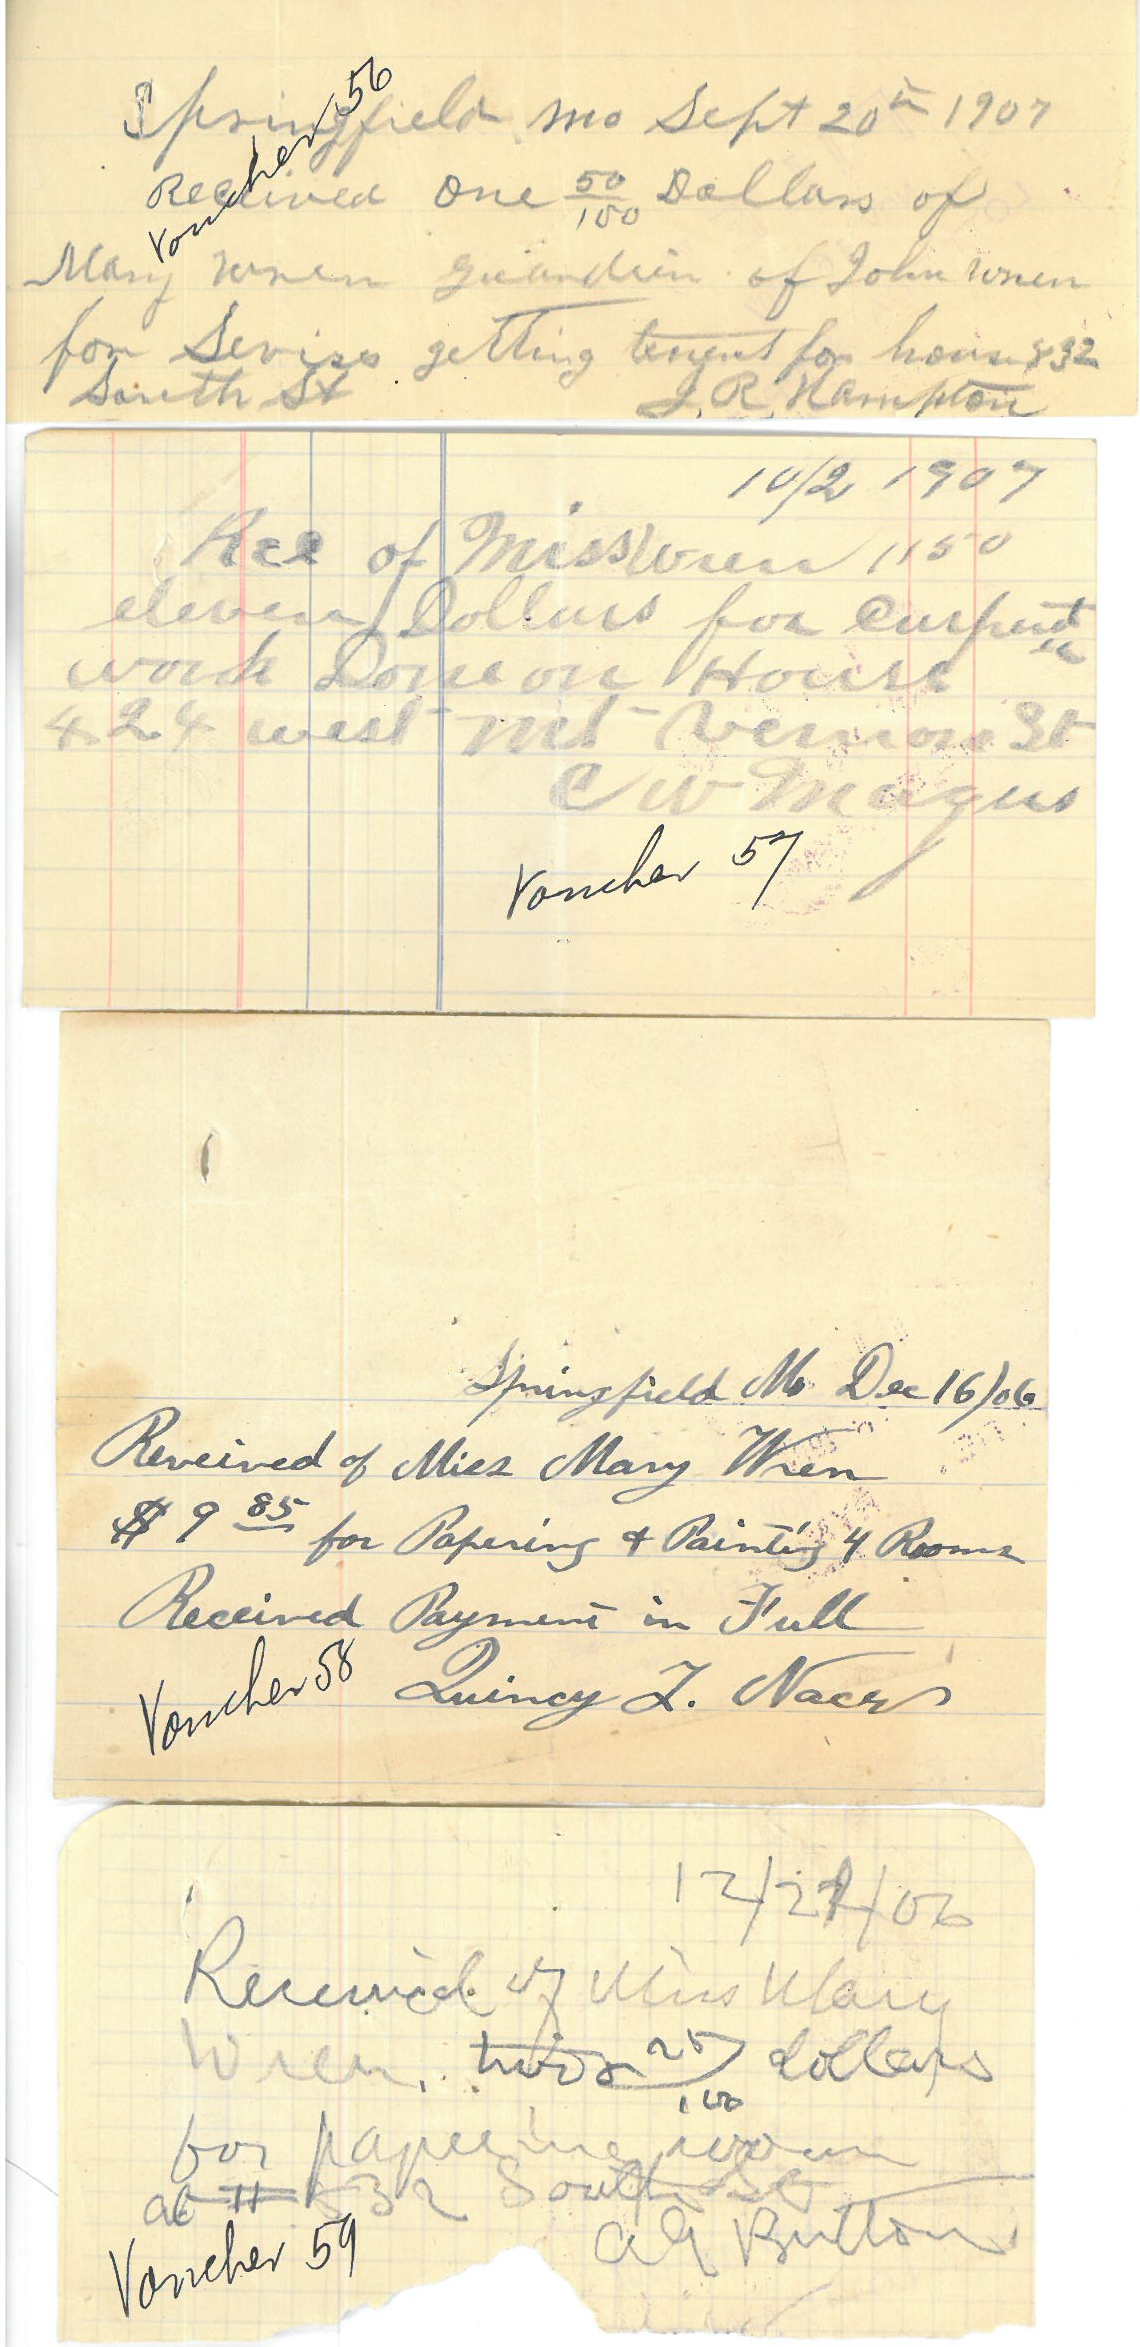 Springfield Mo Sept 20th 1907
Voucher 56
Received One 50/100 Dollars of
Mary Wren Guardien of John Wren
for Sevises getting tenent for house 532
South St J. R. Hampton
10/2 1907
Rec of Miss Wren 11 50
eleven Dollars for Carpenter
work Done on House
424 west Mt Vernon St
C W Mayus
Voucher 57
Springfield Mo Dec 16/06
Received of Miss Mary Wren
$ 9 85 for Papering & Painting 4 Rooms
Received Payment in Full
Voucher 58
Quincy T. Nacers
12/21/06
Received of Miss Mary
Wren, two & 25/100 dollars
for papering room
at # 532 South St
A G Button
Voucher 59